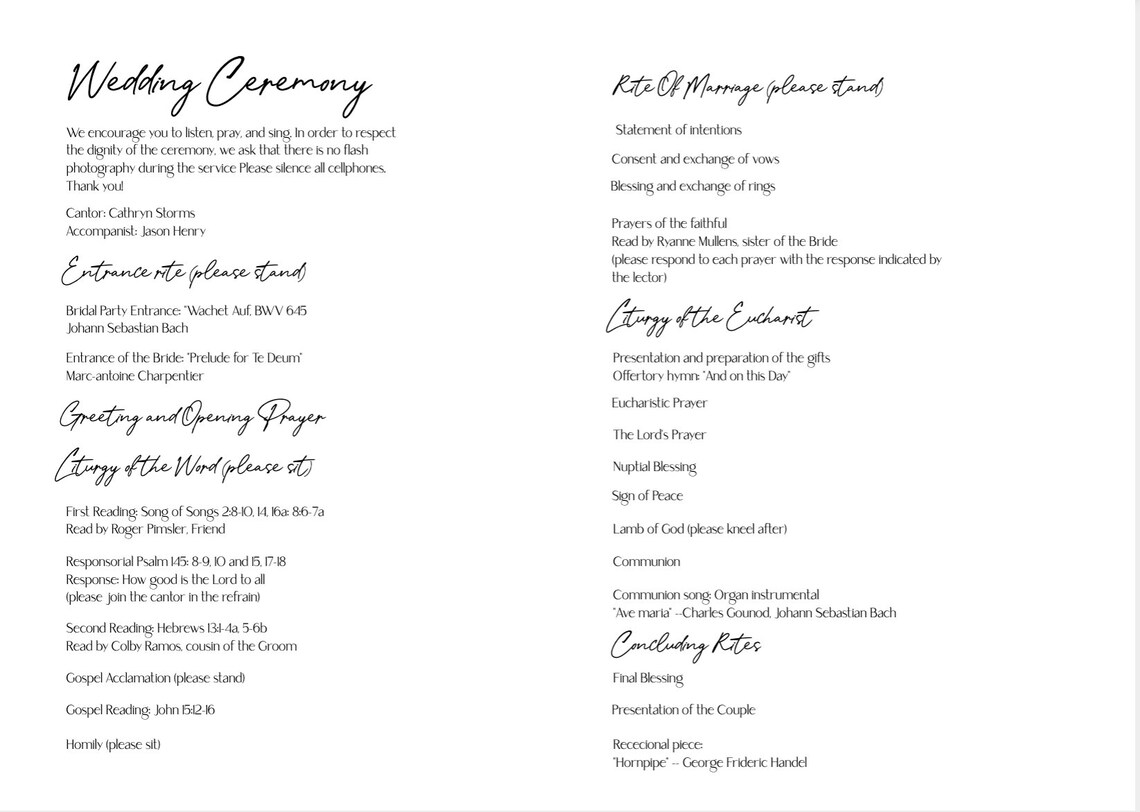 Wedding Ceremony
We encourage you to listen, pray, and sing. In order to respect
the dignity of the ceremony, we ask that there is no flash
photography during the service Please silence all cellphones.
Thank you!
Cantor: Cathryn Storms
Accompanist: Jason Henry
Entrance rite (please stand)
Bridal Party Entrance: "Wachet Auf, BWV 645
Johann Sebastian Bach
Entrance of the Bride: "Prelude for Te Deum"
Marc-antoine Charpentier
Greeting and Opening Prayer
Liturgy of the Word (please sit)
First Reading: Song of Songs 2:8-10, 14, 16a: 8:6-7a
Read by Roger Pimsler, Friend
Responsorial Psalm 145: 8-9, 10 and 15, 17-18
Response: How good is the Lord to all
(please join the cantor in the refrain)
Second Reading: Hebrews 13:1-4a, 5-6b
Read by Colby Ramos, cousin of the Groom
Gospel Acclamation (please stand)
Gospel Reading: John 15:12-16
Homily (please sit)
Rite Of Marriage (please stand)
Statement of intentions
Consent and exchange of vows
Blessing and exchange of rings
Prayers of the faithful
Read by Ryanne Mullens, sister of the Bride
(please respond to each prayer with the response indicated by
the lector)
Liturgy of the Eucharist
Presentation and preparation of the gifts
Offertory hymn: "And on this Day"
Eucharistic Prayer
The Lord's Prayer
Nuptial Blessing
Sign of Peace
Lamb of God (please kneel after)
Communion
Communion song: Organ instrumental
"Ave maria" --Charles Gounod, Johann Sebastian Bach
Concluding Rites
Final Blessing
Presentation of the Couple
Rececional piece:
"Hornpipe" -- George Frideric Handel